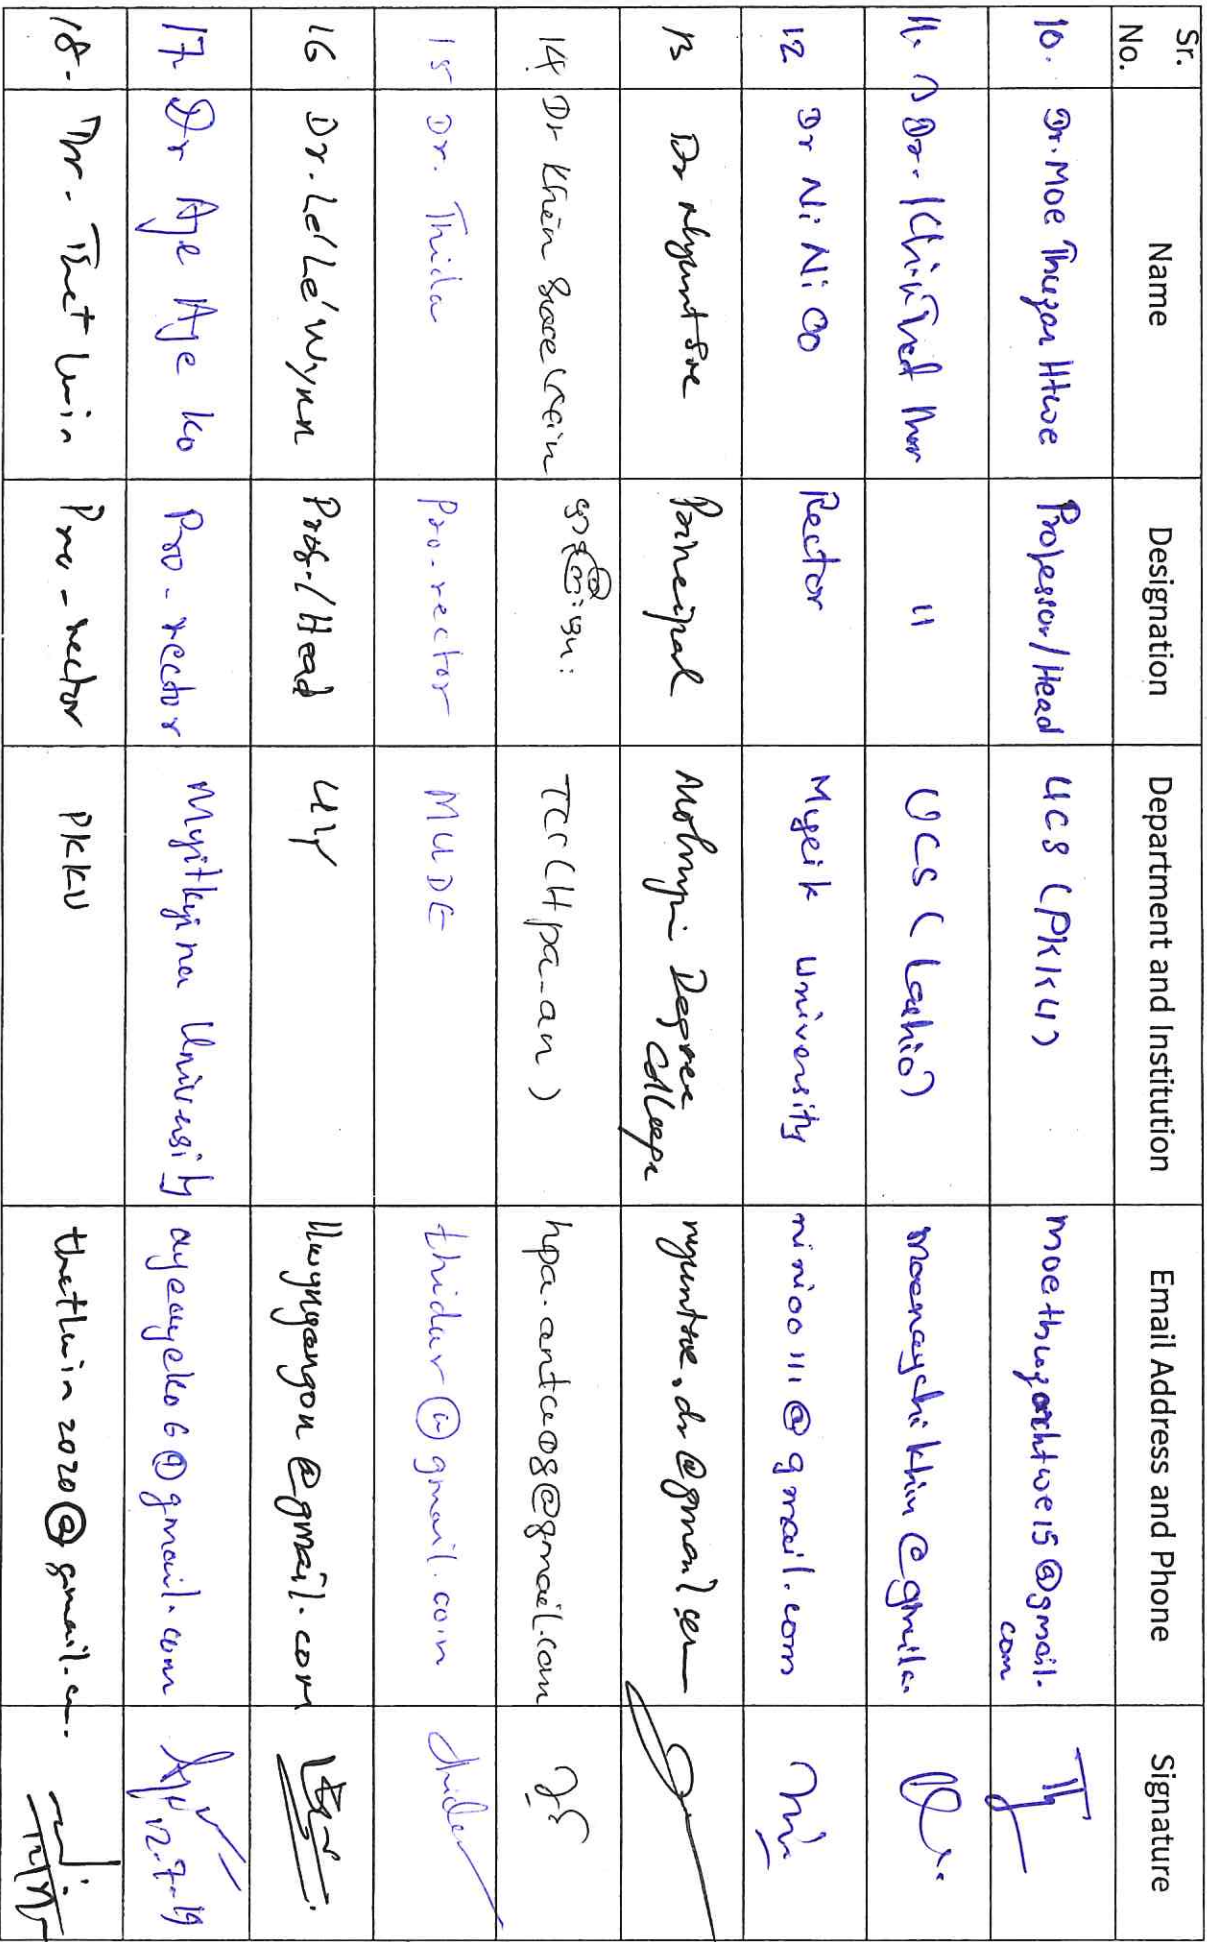 Sr. No. Name Designation Department and Institution Email Address and Phone Signature
10. Dr. Moe Thuzar Htwe Professor/Head UCS (PKKU) moethuzarhtwe15@gmail.com
11. Dr. Khin Thet Mar " UCS (Lashio)
12 Dr Ni Ni Oo Rector Myeik University ninioo111@gmail.com
13 Dr Nyunt Soe Principal Mohnyin Degree College nyuntsoe.dr@gmail.com
14 Dr Khin TCC (Hpa-an)
15 Dr. Thida Pro-rector MUDE thidar@gmail.com
16 Dr. Lé Lé Wynn Prof./Head UY llwynyangon@gmail.com
17 Dr Aye Aye Ko Pro-rector Myitkyina University ayeayeko6@gmail.com 12-7-19
18. Dr. Thet Lwin Pro-rector PKKU thetlwin2020@gmail.